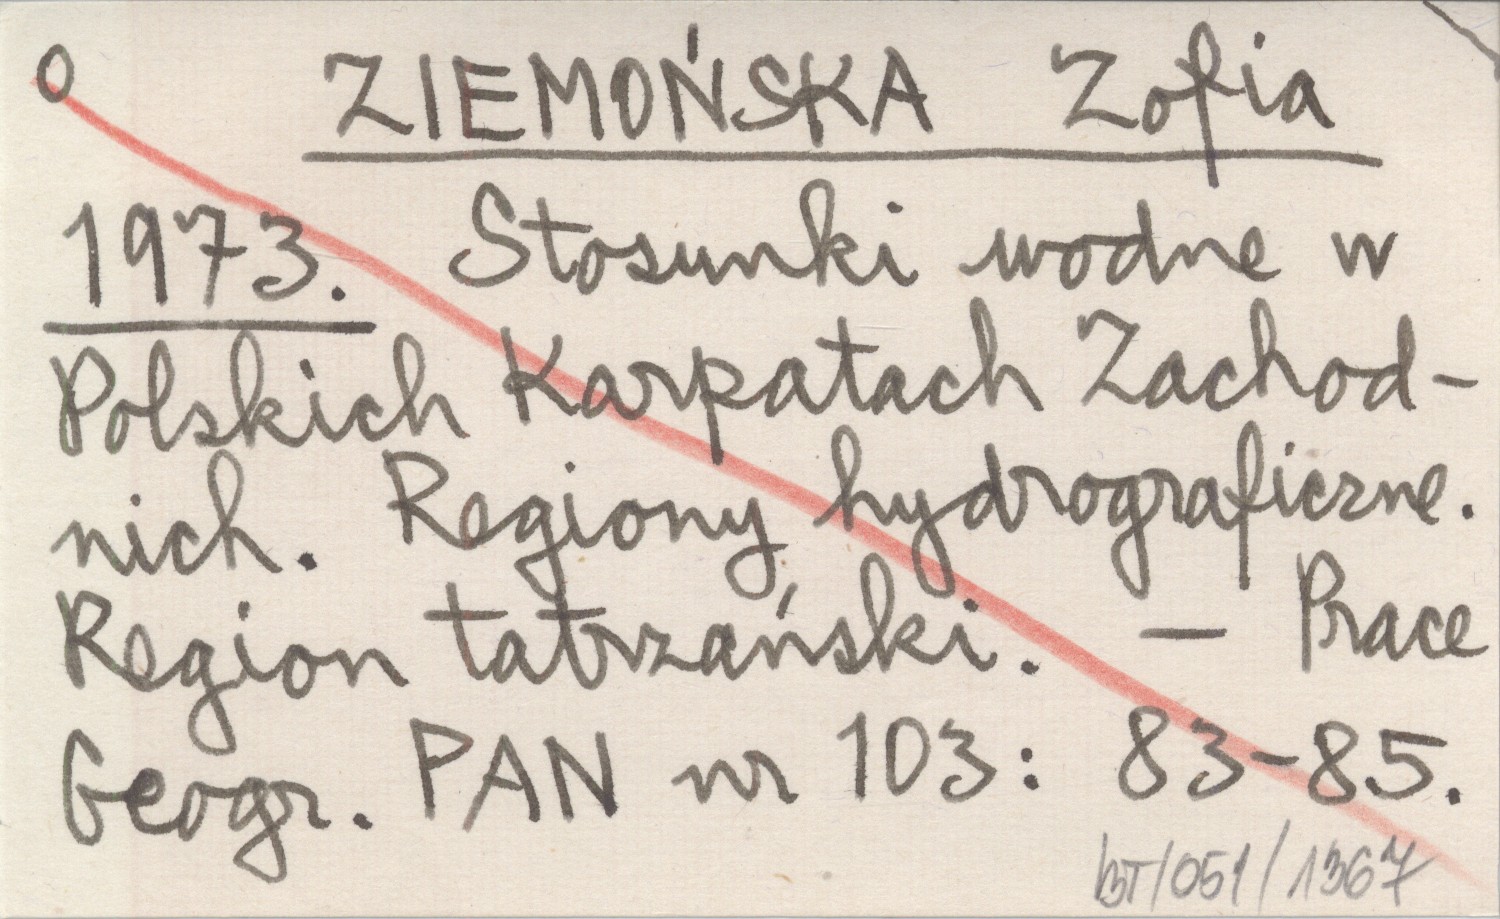 0 ZIEMOŃSKA Zofia
1973. Stosunki wodne w
Polskich Karpatach Zachod-
nich. Regiony hydrograficzne.
Region tatrzański. — Prace
Geogr. PAN nr 103: 83-85.
BT/051/1367